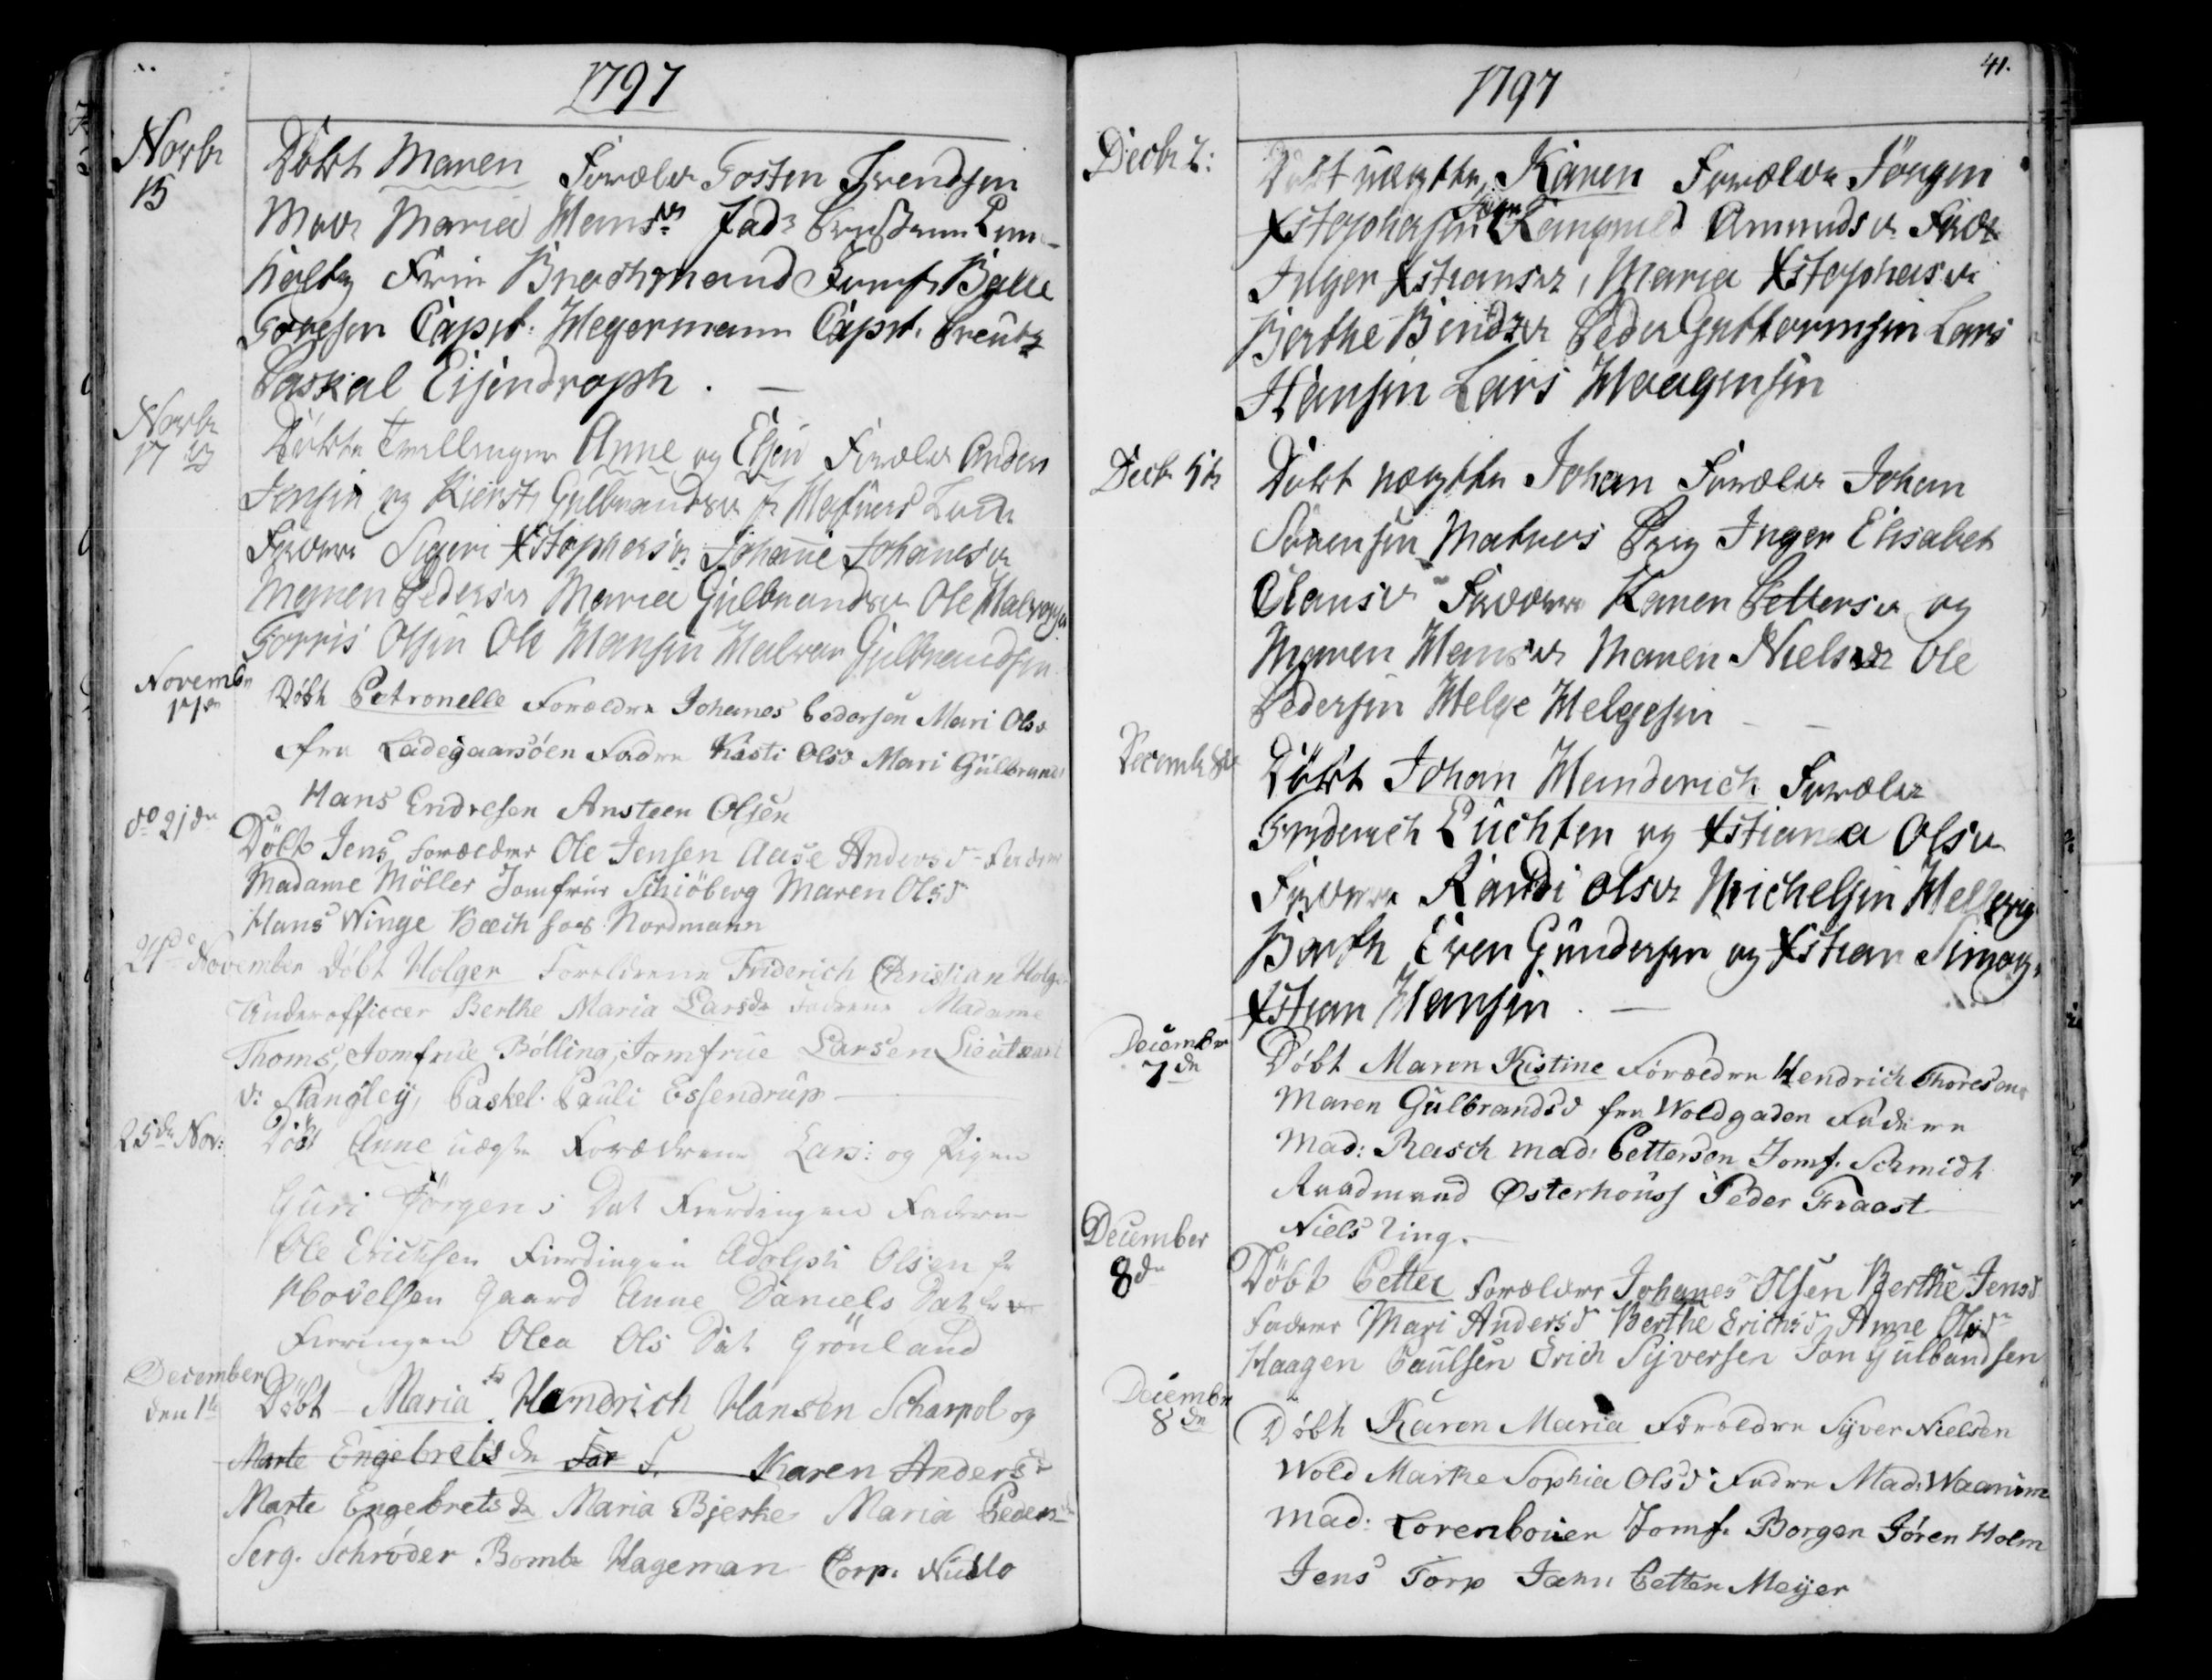 1797
Novbr
15
Döbt Maren Foreldr Tosten Svendsen
Mod: Maria Hansdr Fad:
Frue Brochmand Jomfr Balle
Toresen Capit: Wegermann Capit. Creutz
Paskal Eisendroph.
Novbr
17 de
Döbte Tvillinger Anne og Elsen Foreldr Anders
Jensen og Kiersti Gulbrandsdr
Faddere Sigeri Xstophersdr Johanne Johanesdr
Maren Pedersdr Maria Gulbrandsdr Ole Halvorsen
Torris Olsen Ole Hansen Halvor Gulbrandsen
Novembr
17de
Döbt Petronelle Foreldre Johanes Pedersen Mari Olsd
fra Ladegaarsöen Fadre Kisti Olsd Mari Gulbrands
Hans Endresen Ansteen Olsen
do 21de
Döbt Jens Foreldre Ole Jensen Aase Andersd Fadere
Madame Möller Jomfrue Schiöberg Maren Olsd
Hans Winge Boeck Nordmann
21de November Döbt Holger Foreldrene Friderich Christian Holge
Underofficeer Berthe Maria Larsdr Fadrene Madame
Thoms, Jomfrue Bölling, Jomfrue Larsen Lieutnant
v: Stangley, Paskel. Pauli Essendrup
25de Nov:
Döbt Anne uægte Forældrene Lars: og Pigen
Guri Jörgens Dat Fierdingen Faderne
Ole Erichsen Fierdingen Adolph Olsen fr
Hovelsen Gaard Anne Daniels Dat
Fierringen Olea Ols Dat Grönland
December
den 1te
Döbt Maria Fr Hendrich Hansen Scharpol og
Marte Engebrets dr For F. Karen Andersd
Marte Engebrets dr Maria Bjerke Maria Peders
Serg. Schröder Bombr Hageman Corp. Niello
1797
41.
Decbr 2:
Döbt uægte, Karen Forældre Jörgen
Xstophersen Pigen Rangnild Amundsdr Fadr
Inger Xstiansdr, Maria Xstophersdr
Berthe Bendzdr Peder Guttormsen Lars
Hansen Lars Haagensen
Decbr 5te
Döbt uægte Johan Foreldre Johan
Sörensen Matros Pige Inger Elisabet
Clausdr Faddere Karen Pettersdr og
Maren Hansdr Maren Nielsdr Ole
Pedersen Helge Helgesen
Decembr
Döbt Johan Henderich Foreldre
Friderich Luchten og Xstiana Olsdr
Faddere Randi Olsdr Michelsen
Barth Even Gundersen og Xstian
Xstian Hansen.
Decembr
7de
Döbt Maren Kistine Foreldre Hendrich Thoresen
Maren Gulbrandsd fra Woldgaden Fadere
Mad: Rasch mad: Pettersen Jomf. Schmidt
Raadmand Österhouss Peder Fraast
Niels Ling.
December
8de
Döbt Petter Foreldre Johanes Olsen Berthe Jensd
Fadere Mari Andersd Berthe Erichsd Anne Olsdr
Haagen Paulsen Erich Syversen Jon Gulbandsen
Decembr
8de
Döbt Karen Maria Foreldre Syver Nielsen
Wold Marthe Sophia Olsd Fadre Mad: Waanum
Mad: Lorenboien Jomf. Borgen Jören Holm
Jens Torp Jahn Petter Meyer